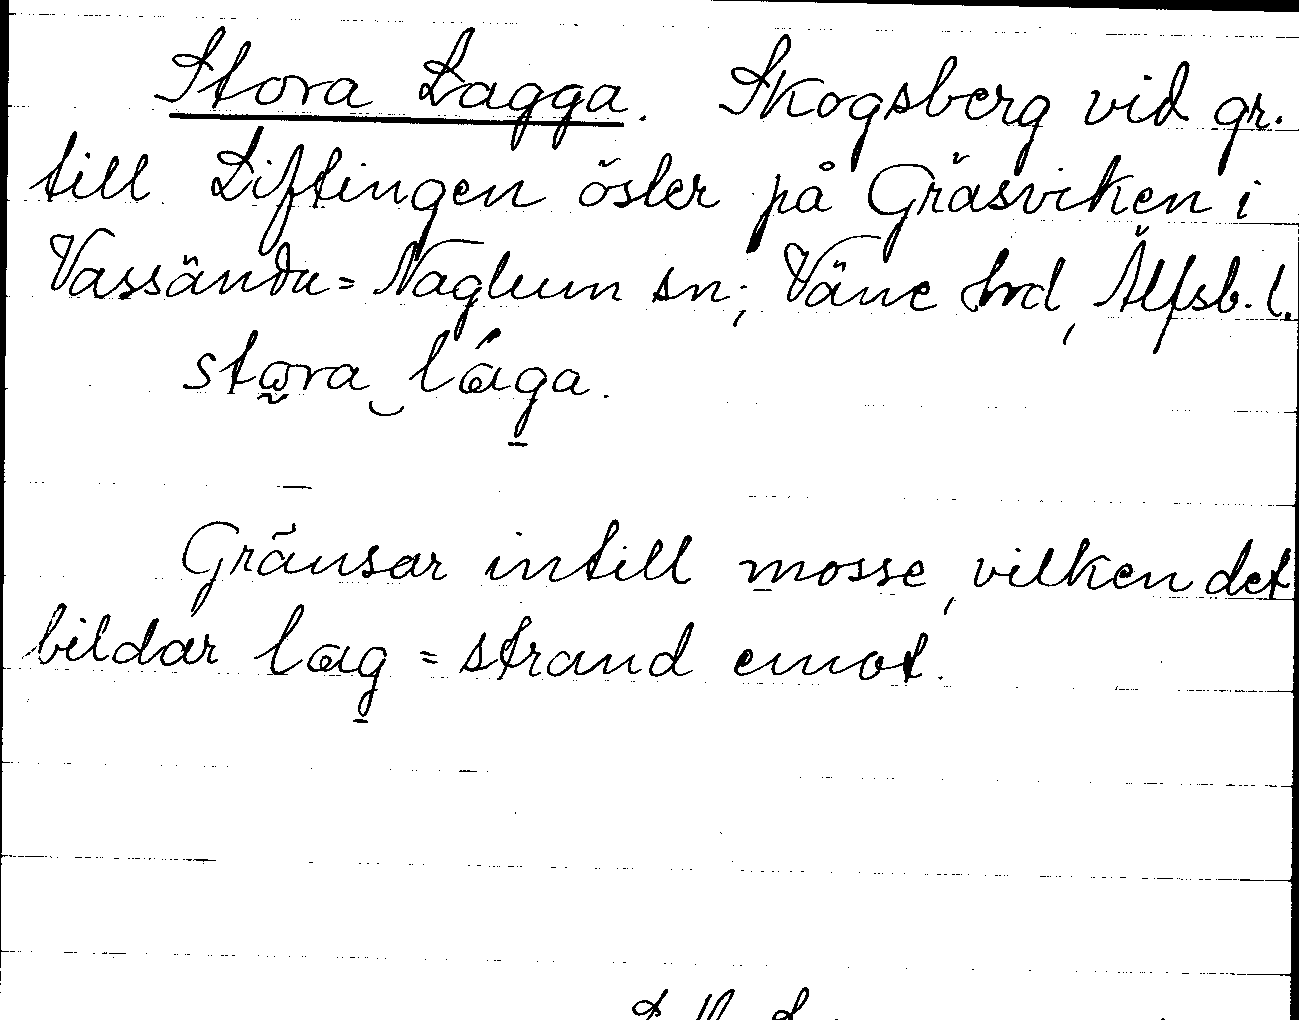 Stora Lagga. Skogsberg vid gr.
till Liftingen öster på Gräsviken i
Vassända=Naglum sn; Väne hrd, Älfsb. l.
stora låga.
Gränsar intill mosse, vilken det
bildar lag = strand emot.